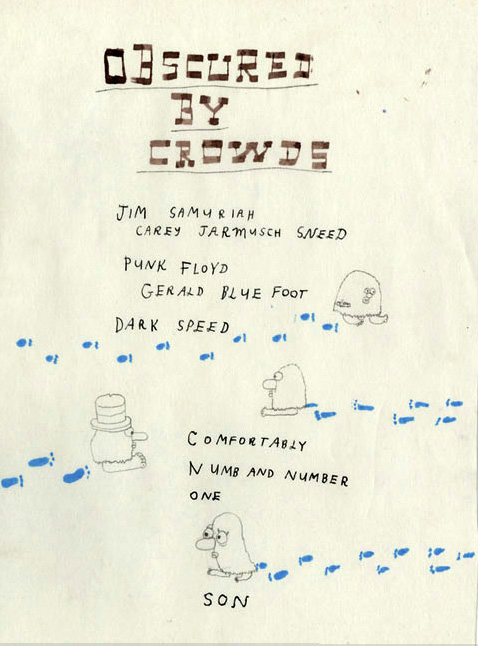 OBSCURED
BY
CROWDS
JIM SAMURIAH
CAREY JARMUSCH SNEED
PUNK FLOYD
GERALD BLUE FOOT
DARK SPEED
COMFORTABLY
NUMB AND NUMBER
ONE
SON